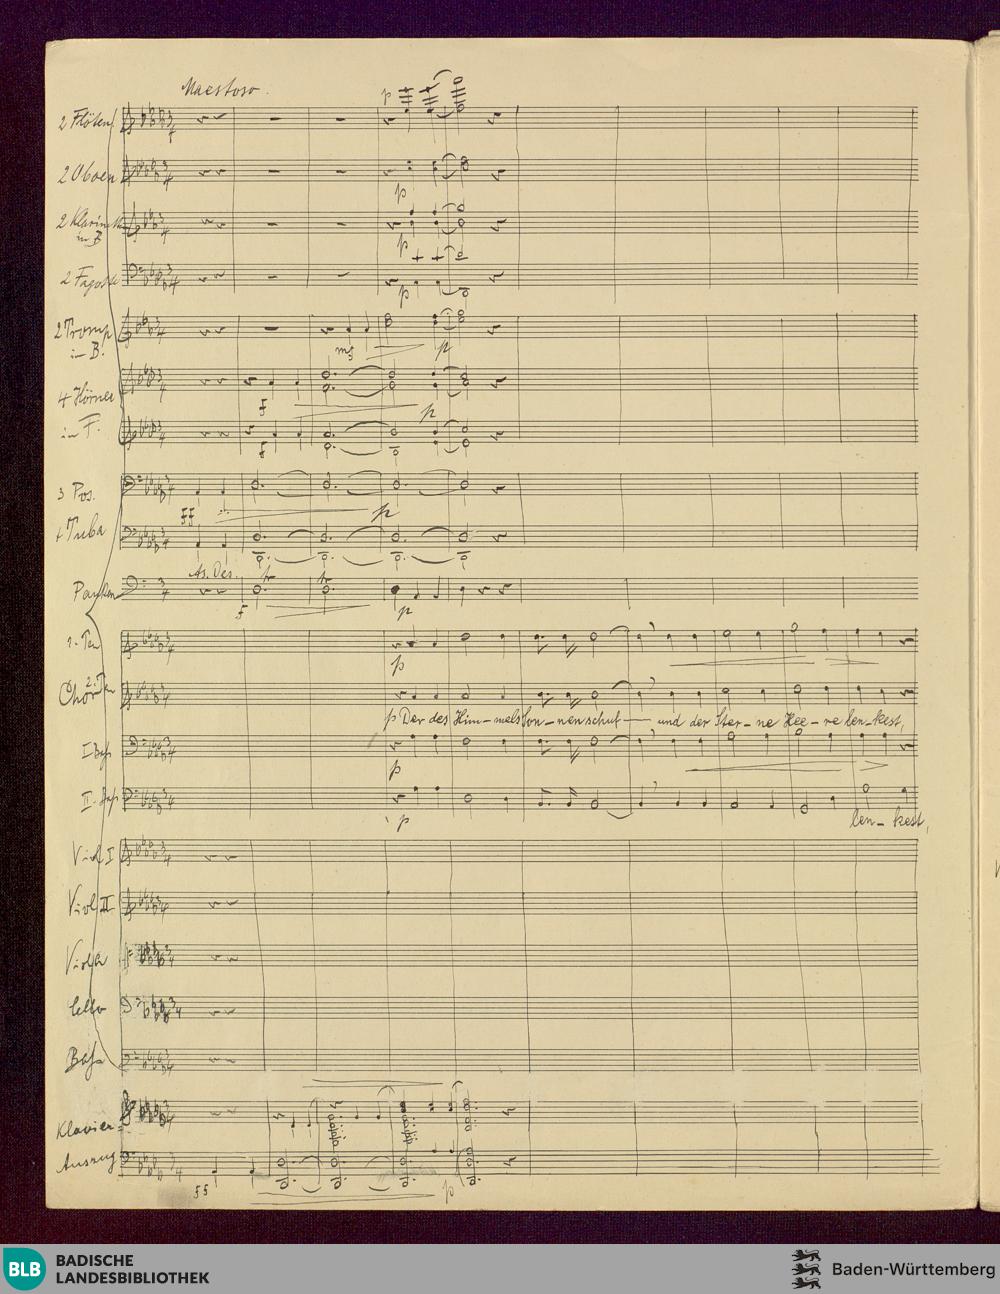 Maestoso.
2 Flöten
p
2 Oboen
p
2 Klarinett
in B
p
2 Fagotte
p
2 Tromp
in B.
mf
p
4 Hörner
f
p
in F.
f
3 Pos.
ff
p
1 Tuba
As. Des.
Pauken
f
p
1. Ten
p
2. Ten
Chor
p Der des Him-mels Son-nen schuf und der Ster-ne Hee-re len-kest,
I Bass
p
II. Bass
p
len-kest,
Viol I
Viol II
Viola
Cello
Bass
Klavier-
Auszug
ff
p
BLB
BADISCHE
LANDESBIBLIOTHEK
Baden-Württemberg